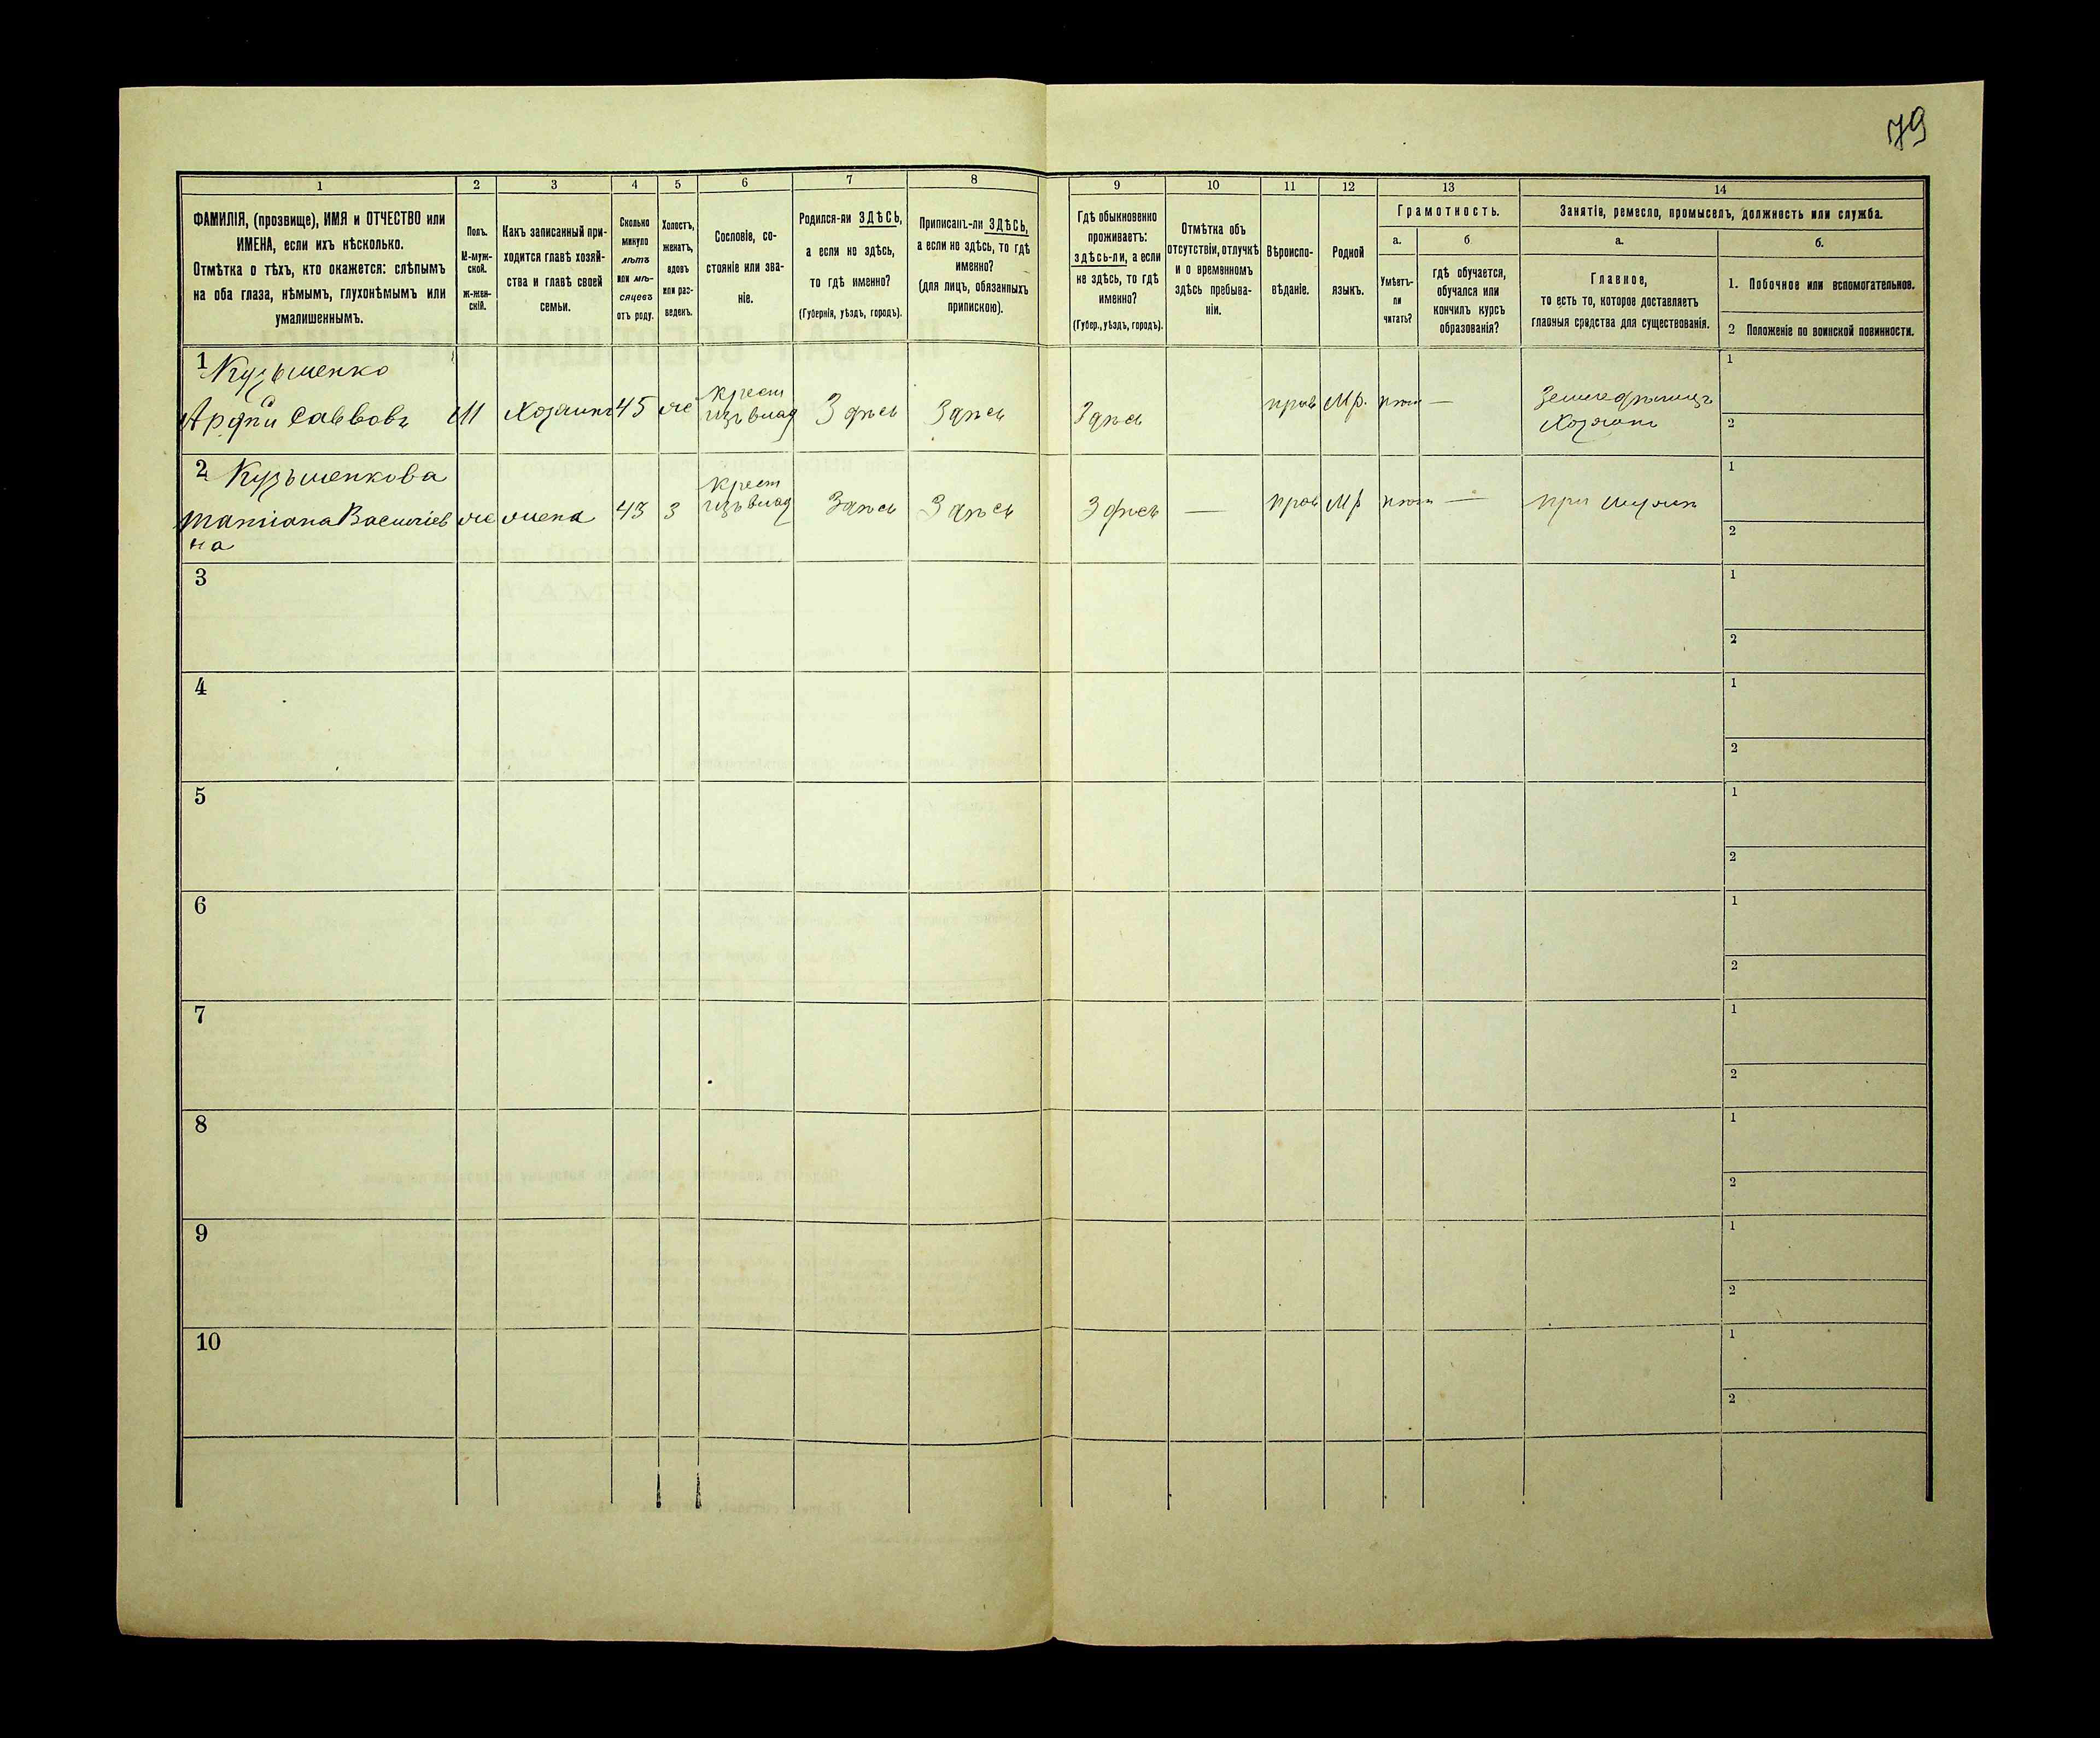 79
1
2
3
4
5
6
7
8
9
10
11
12
13
14
ФАМИЛІЯ, (прозвище), ИМЯ и ОТЧЕСТВО или
ИМЕНА, если ихъ нѣсколько.
Отмѣтка о тѣхъ, кто окажется: слѣпымъ
на оба глаза, нѣмымъ, глухонѣмымъ или
умалишеннымъ.
Полъ.
М-муж-
ской.
Ж-жен-
скій.
Какъ записанный при-
ходится главѣ хозяй-
ства и главѣ своей
семьи.
Сколько
минуло
лѣтъ
или мѣ-
сяцевъ
отъ роду.
Холостъ,
женатъ,
вдовъ
или раз-
веденъ.
Сословіе, со-
стояніе или зва-
ніе.
Родился-ли ЗДѢСЬ,
а если не здѣсь,
то гдѣ именно?
(Губернія, уѣздъ, городъ).
Приписанъ-ли ЗДѢСЬ,
а если не здѣсь, то гдѣ
именно?
(для лицъ, обязанныхъ
припискою).
Гдѣ обыкновенно
проживаетъ:
здѣсь-ли, а если
не здѣсь, то гдѣ
именно?
(Губер., уѣздъ, городъ).
Отмѣтка объ
отсутствіи, отлучкѣ
и о временномъ
здѣсь пребыва-
ніи.
Вѣроиспо-
вѣданіе.
Родной
языкъ.
Грамотность.
а.
Умѣетъ-
ли
читать?
б
гдѣ обучается,
обучался или
кончилъ курсъ
образованія?
Занятіе, ремесло, промыселъ, должность или служба.
а.
Главное,
то есть то, которое доставляетъ
главныя средства для существованія.
б.
1. Побочное или вспомогательное.
2 Положеніе по воинской повинности.
1 Кузьменко
Саввовъ М Хозяинъ 45 ж Крест изъ влад Здѣсь Здѣсь Здѣсь прав Мр. нѣт — Земледѣлецъ Хозяинъ
1
2
2 Кузьменкова
Татіана Василіев
на
ж жена 43 з Крест изъ влад Здѣсь Здѣсь Здѣсь — прав Мр нѣт — при мужѣ
1
2
3
1
2
4
1
2
5
1
2
6
1
2
7
1
2
8
1
2
9
1
2
10
1
2